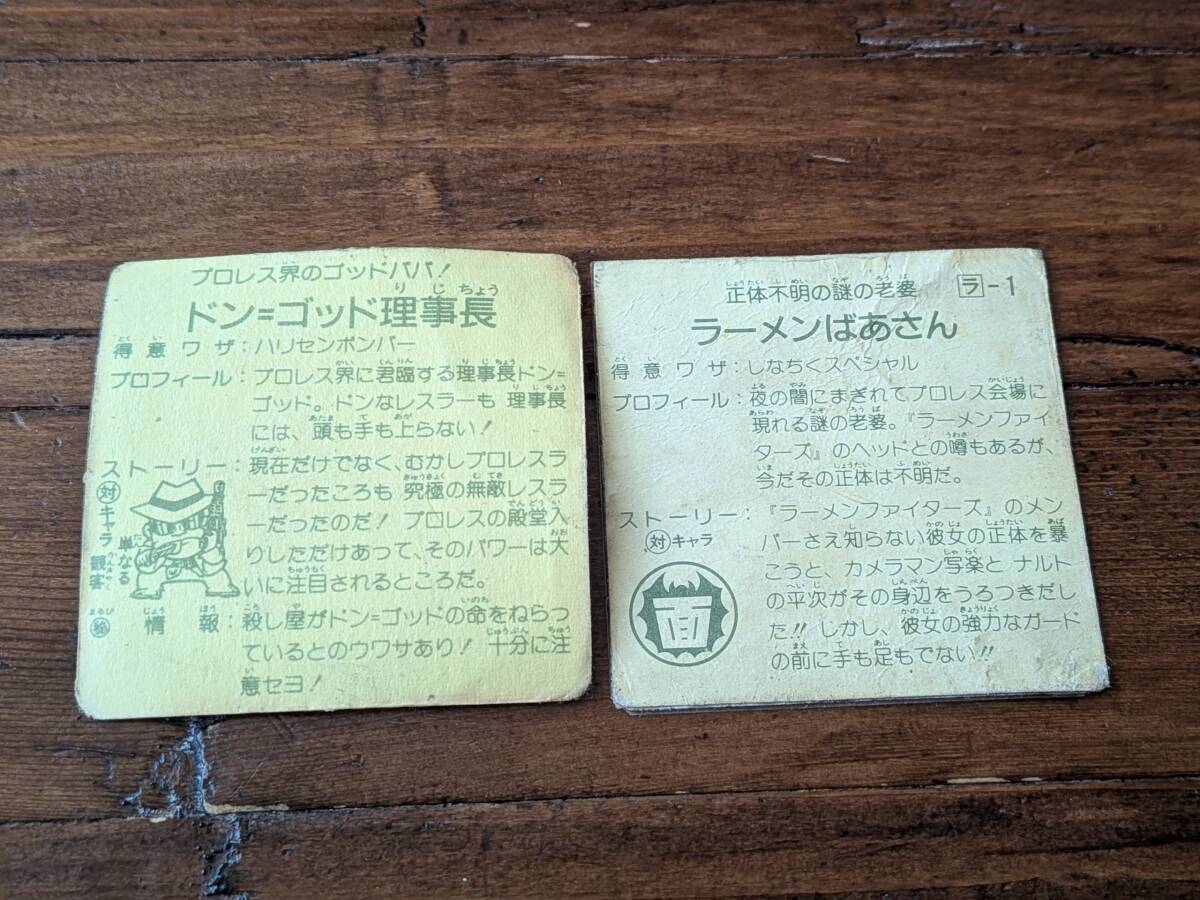 プロレス界のゴッドパパ!
ドン=ゴッド理事長
得意ワザ:ハリセンボンバー
プロフィール:プロレス界に君臨する理事長ドン=
ゴッド。ドンなレスラーも 理事長
には、頭も手も上らない!
ストーリー:現在だけでなく、むかしプロレスラ
ーだったころも 究極の無敵レスラ
ーだったのだ! プロレスの殿堂入
りしただけあって、そのパワーは大
いに注目されるところだ。
対キャラ
単なる
観客
㊙情報:殺し屋がドン=ゴッドの命をねらっ
ているとのウワサあり! 十分に注
意セヨ!
正体不明の謎の老婆 ラ-1
ラーメンばあさん
得意ワザ:しなちくスペシャル
プロフィール:夜の闇にまぎれてプロレス会場に
現れる謎の老婆。『ラーメンファイ
ターズ』のヘッドとの噂もあるが、
今だその正体は不明だ。
ストーリー:『ラーメンファイターズ』のメン
バーさえ知らない彼女の正体を暴
こうと、カメラマン写楽と ナルト
の平次がその身辺をうろつきだし
た!! しかし、彼女の強力なガード
の前に手も足もでない!!
対キャラ